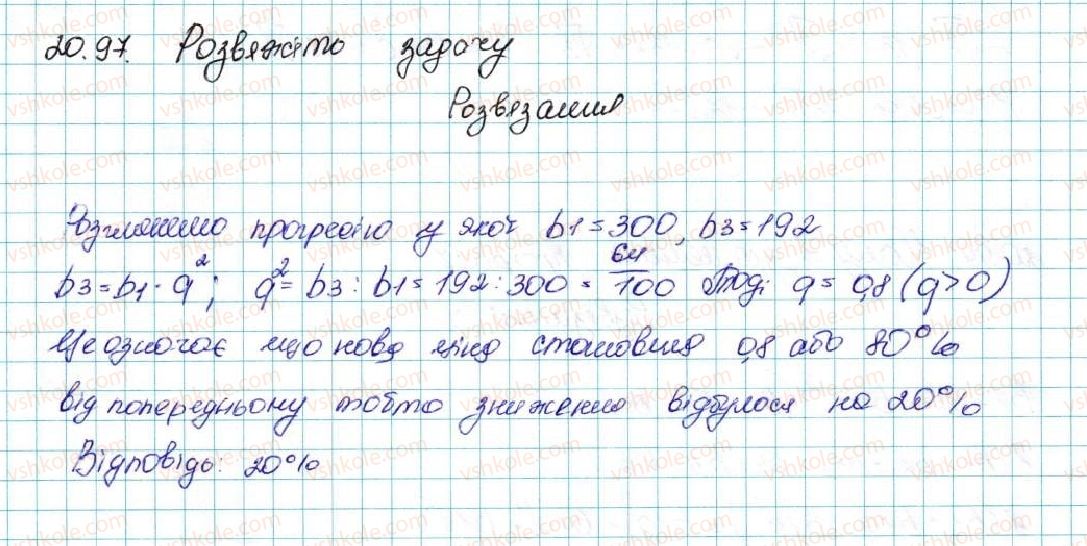 20.97. Розвяжіть задачу
Розвязання
Розглянемо прогресію у якої b1 = 300, b3 = 192
b3 = b1 · q²; q² = b3 : b1 = 192 : 300 = 64/100 Тоді q = 0,8 (q > 0)
Це означає що нова ціна становила 0,8 або 80%
від попередньому тобто зниження відбулося на 20%
Відповідь: 20%
vshkole.com